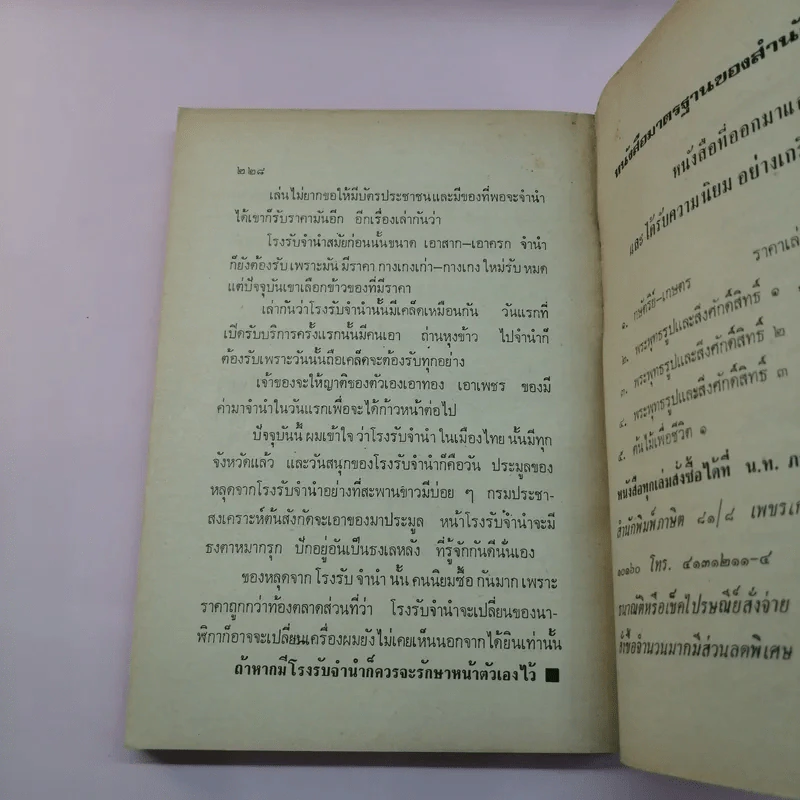 ๒๒๘
เล่นไม่ยากขอให้มีบัตรประชาชนและมีของที่พอจะจำนำ
ได้เขาก็รับราคามันอีก อีกเรื่องเล่ากันว่า
โรงรับจำนำสมัยก่อนนั้นขนาด เอาสาก–เอาครก จำนำ
ก็ยังต้องรับ เพราะมัน มีราคา กางเกงเก่า–กางเกง ใหม่รับ หมด
แต่ปัจจุบันเขาเลือกข้าวของที่มีราคา
เล่ากันว่าโรงรับจำนำนั้นมีเคล็ดเหมือนกัน วันแรกที่
เปิดรับบริการครั้งแรกนั้นมีคนเอา ถ่านหุงข้าว ไปจำนำก็
ต้องรับเพราะวันนั้นถือเคล็ดจะต้องรับทุกอย่าง
เจ้าของจะให้ญาติของตัวเองเอาทอง เอาเพชร ของมี
ค่ามาจำนำในวันแรกเพื่อจะได้ก้าวหน้าต่อไป
ปัจจุบันนี้ ผมเข้าใจ ว่าโรงรับจำนำ ในเมืองไทย นั้นมีทุก
จังหวัดแล้ว และวันสนุกของโรงรับจำนำก็คือวัน ประมูลของ
หลุดจากโรงรับจำนำอย่างที่สะพานขาวมีบ่อย ๆ กรมประชา-
สงเคราะห์ต้นสังกัดจะเอาของมาประมูล หน้าโรงรับจำนำจะมี
ธงตาหมากรุก ปักอยู่อันเป็นธงเลหลัง ที่รู้จักกันดีนั่นเอง
ของหลุดจาก โรงรับ จำนำ นั้น คนนิยมซื้อ กันมาก เพราะ
ราคาถูกกว่าท้องตลาดส่วนที่ว่า โรงรับจำนำจะเปลี่ยนของนา-
ฬิกาก็อาจจะเปลี่ยนเครื่องผมยังไม่เคยเห็นนอกจากได้ยินเท่านั้น
ถ้าหากมีโรงรับจำนำก็ควรจะรักษาหน้าตัวเองไว้ ■
หนังสือมาตรฐานของสำนั
หนังสือที่ออกมาแล
และได้รับความนิยม อย่างเกรี
ราคาเล่
๑. กษัตรีย์–เกษตร
๒. พระพุทธรูปและสิ่งศักดิ์สิทธิ์ ๑
๓. พระพุทธรูปและสิ่งศักดิ์สิทธิ์ ๒
๔. พระพุทธรูปและสิ่งศักดิ์สิทธิ์ ๓
๕. ต้นไม้เพื่อชีวิต ๑
หนังสือทุกเล่มสั่งซื้อได้ที่ น.ท. ภ
สำนักพิมพ์ภาษิต ๘๑/๘ เพชรเก
๑๐๑๖๐ โทร. ๔๑๓๑๒๑๑–๔
ธนาณัติหรือเช็คไปรษณีย์สั่งจ่าย
สั่งซื้อจำนวนมากมีส่วนลดพิเศษ